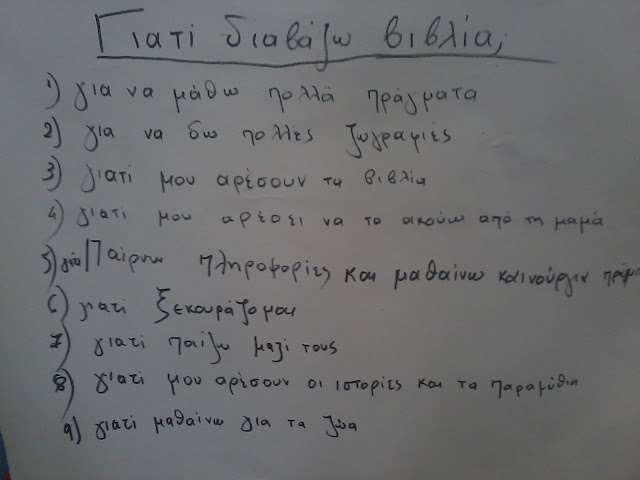 Γιατί διαβάζω βιβλία;
1) για να μάθω πολλά πράγματα
2) για να δω πολλές ζωγραφιές
3) γιατί μου αρέσουν τα βιβλία
4) γιατί μου αρέσει να το ακούω από τη μαμά
5) Παίρνω πληροφορίες και μαθαίνω
6) γιατί ξεκουράζομαι
7) γιατί παίζω μαζί τους
8) γιατί μου αρέσουν οι ιστορίες και τα παραμύθια
9) γιατί μαθαίνω για τα ζώα